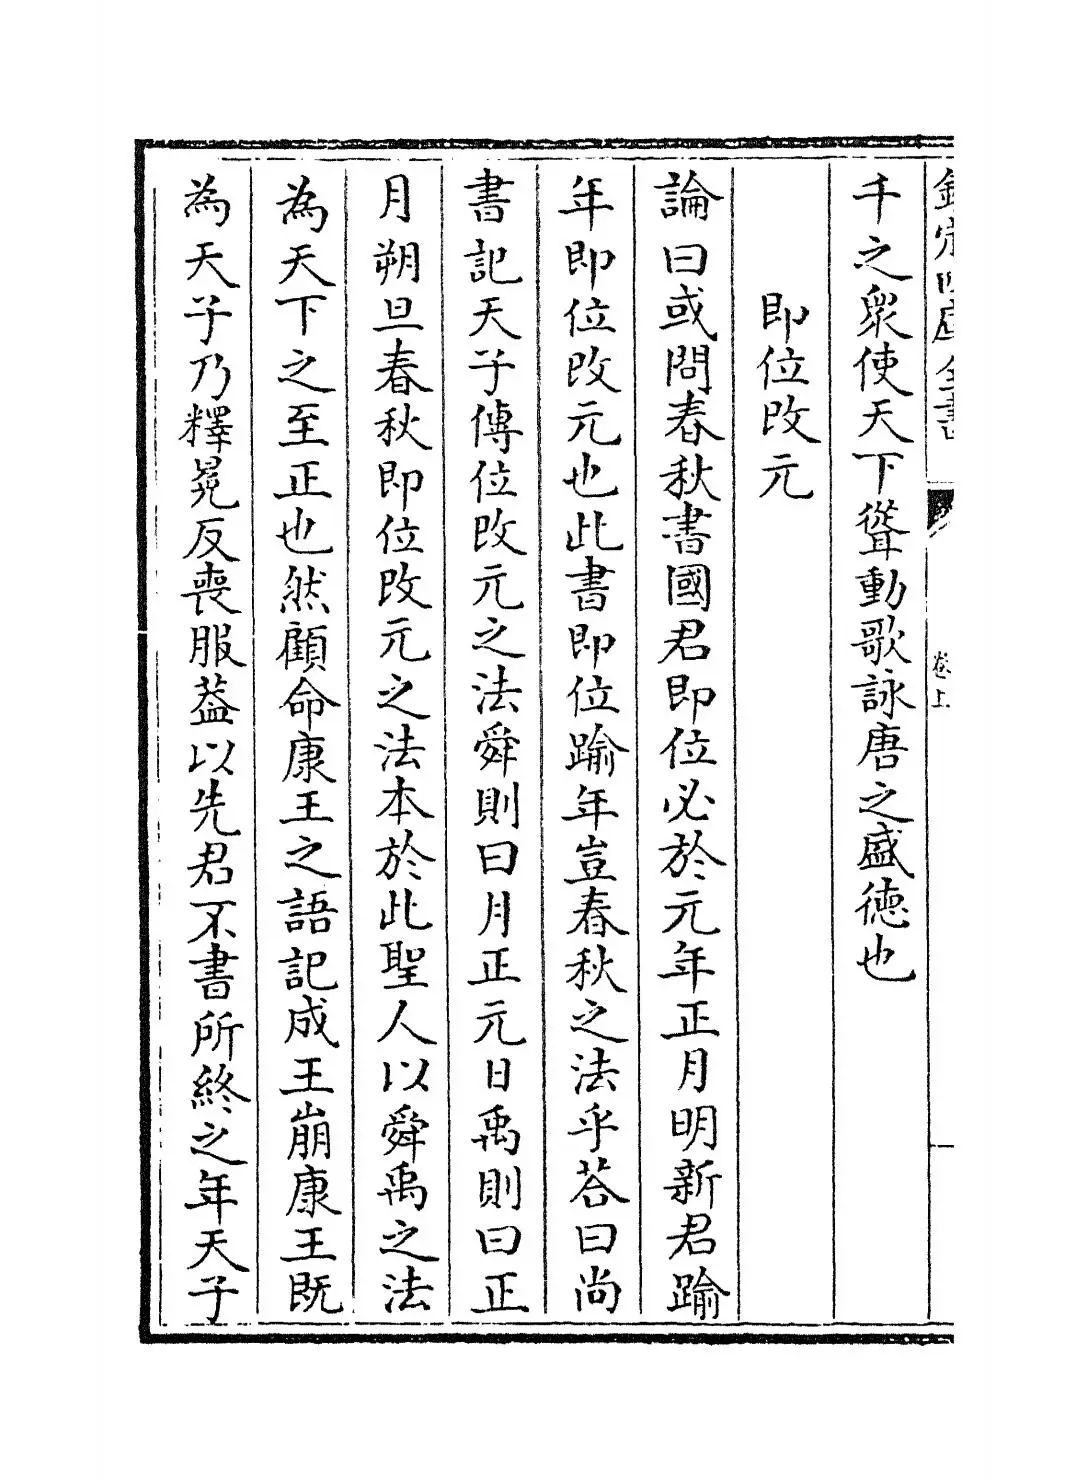 欽定四庫全書
卷上
千之衆使天下聳動歌詠唐之盛徳也
即位改元
論曰或問春秋書國君即位必於元年正月明新君踰
年即位改元也此書即位踰年豈春秋之法乎荅曰尚
書記天子傳位改元之法舜則曰月正元日禹則曰正
月朔旦春秋即位改元之法本於此聖人以舜禹之法
為天下之至正也然顧命康王之語記成王崩康王既
為天子乃釋冕反喪服葢以先君不書所終之年天子